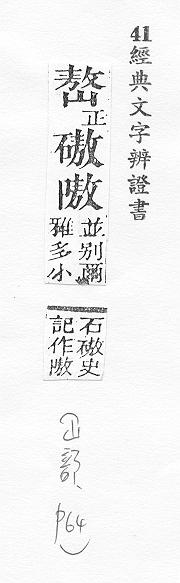 41經典文字辨證書
嶅正磝嗷
並別爾
雅多小
石磝史
記作嗷
p64